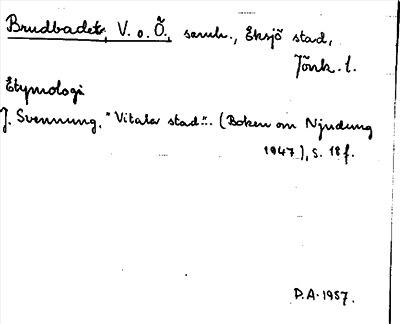 Brudbadet, V. o. Ö., samh., Eksjö stad,
Jönk. l.
Etymologi
J. Svennung, "Vitala stad". (Boken om Njudung
1947), s. 18 f.
D.A. 1957.